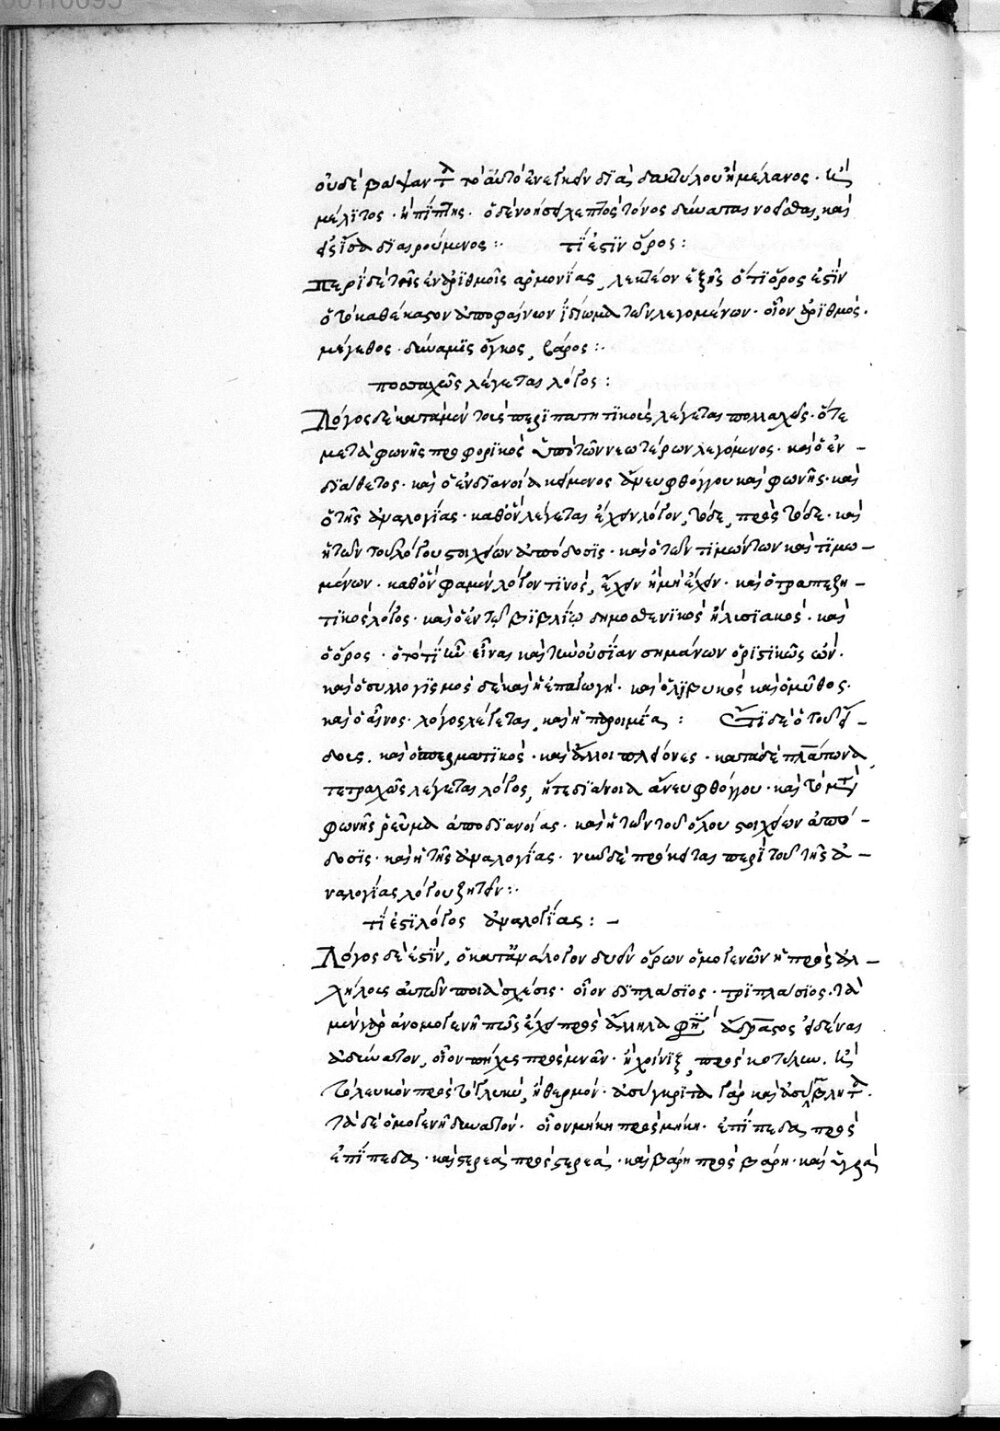 οὐδὲ βάψαντα τὸ αὐτὸ ἐνεγκεῖν δϊὰ δακτύλου ἢ μέλανος · καὶ
μέλϊτος · ἢ πίττης · ὁ δὲ νοήσει ληπτὸς τόνος δύναται νοεῖσθαι καὶ
εἰς ἴσα δϊαιρούμενος :· τί ἐστϊν ὅρος :
Περὶ δὲ τῆς ἐν ἀρϊθμοῖς ἁρμονίας, λεκτέον ἑξῆς ὅτϊ ὅρος ἐστϊν
ὁ τὸ καθέκαστον ἀποφαίνων ἰδίωμα τῶν λεγομένων · οἷον ἀρϊθμός ·
μέγεθος · δύναμϊς ὄγκος, βάρος :·
ποσαχῶς λέγεται λόγος :
Λόγος δὲ κατὰ μὲν τοὺς περϊπατητϊκοὺς λέγεται πολλαχῶς · ὅ τε
μετὰ φωνῆς προφορϊκὸς ὑπὸ τῶν νεωτέρων λεγόμενος · καὶ ὁ ἐν –
δϊάθετος · καὶ ὁ ἐν δϊανοίᾳ κείμενος ἄνευ φθόγγου καὶ φωνῆς · καὶ
ὁ τῆς ἀναλογίας · καθ' ὃν λέγεται ἔχειν λόγον, τόδε, πρὸς τόδε · καὶ
ἡ τῶν τοῦ λόγου στοιχείων ἀπόδοσϊς · καὶ ὁ τῶν τϊμώντων καὶ τϊμω –
μένων · καθ' ὃν φαμὲν λόγον τϊνὸς, ἔχειν ἢ μὴ ἔχειν · καὶ ὁ τραπεζη –
τϊκὸς λόγος · καὶ ὁ ἐν τῷ βϊβλίῳ δημοσθενϊκὸς ἢ λυσϊακός · καὶ
ὁ ὅρος · ὁ τὸ τί ἦν εἶναι καὶ τὴν οὐσίαν σημαίνων ὁρϊστϊκῶς ὤν ·
καὶ ὁ συλλογϊσμὸς δὲ καὶ ἡ ἐπαγωγή · καὶ ὁ λϊβυκὸς καὶ ὁ μῦθος ·
καὶ ὁ αἶνος · λόγος λέγεται, καὶ ἡ παροιμία : Ἔτϊ δὲ ὁ τοῦ εἴ –
δους · καὶ ὁ σπερματϊκὸς · καὶ ἄλλοι πλείονες · κατὰ δὲ πλάτωνα
τετραχῶς λέγεται λόγος, ἥ τε δϊάνοια ἄνευ φθόγγου · καὶ τὸ μετὰ
φωνῆς ῥεῦμα ἀπὸ δϊανοίας · καὶ ἡ τῶν τοῦ ὅλου στοιχείων ἀπό –
δοσϊς · καὶ ἡ τῆς ἀναλογίας · νῦν δὲ πρόκειται περὶ τοῦ τῆς ἀ –
ναλογίας λόγου ζητεῖν :·
τί ἐστϊ λόγος ἀναλογίας : –
Λόγος δέ ἐστϊν, ὁ κατὰ ἀνάλογον δυεῖν ὅρων ὁμογενῶν ἡ πρὸς ἀλ –
λήλους αὐτῶν ποιὰ σχέσις · οἷον δϊπλάσϊος · τρϊπλάσϊος · τὰ
μὲν γὰρ ἀνομογενῆ πῶς ἔχει πρὸς ἄλληλα φησὶ ἄδραστος εἰδέναι
ἀδύνατον, οἷον πῆχυς πρὸς μνᾶν · ἢ χοίνϊξ, πρὸς κοτύλην · καὶ
τὸ λευκὸν πρὸς τὸ γλυκὺ, ἢ θερμόν · ἀσύγκρϊτα γὰρ καὶ ἀσύμβλητα ·
τὰ δὲ ὁμογενῆ δυνατόν · οἷον μήκη πρὸς μήκη · ἐπίπεδα πρὸς
ἐπίπεδα · καὶ στερεὰ πρὸς στερεὰ · καὶ βάρη πρὸς βάρη · καὶ ὑγρὰ